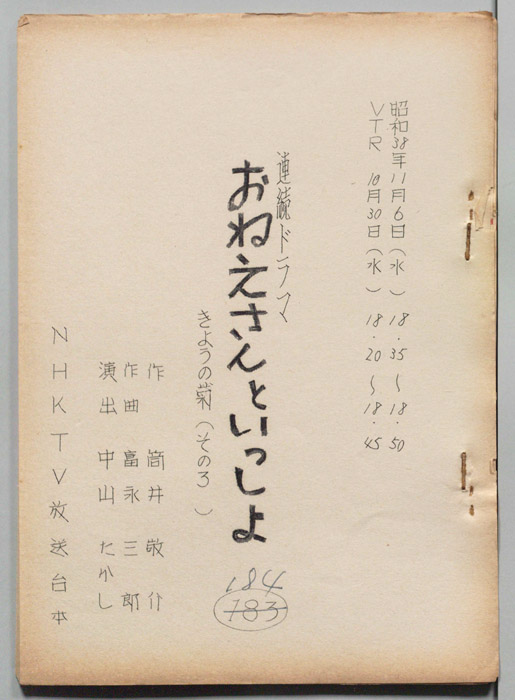 昭和38年11月6日(水) 18.35〜18.50
VTR 10月30日(水) 18.20〜18.45
連続ドラマ
おねえさんといっしょ
きようの菊(その3)
184
183
作 筒井敬介
作曲 冨永三郎
演出 中山たかし
NHKTV放送台本